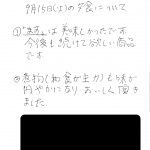 9月15日(土)の夕食について
①"玄米"は美味しかったです
今後も続けて欲しい商品
です
②煮物(和食が主か)も味が
円やかになり おいしく頂き
ました